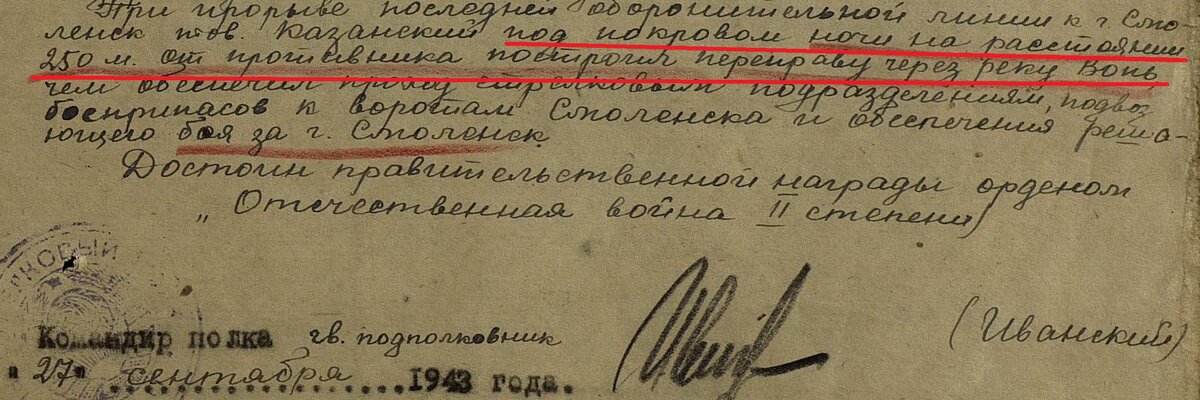 При прорыве последней оборонительной линии к г. Смо-
ленск тов. Казанский под покровом ночи на расстоянии
250 м. от противника построил переправу через реку Вопь
чем обеспечил проход стрелковым подразделениям, подвоз
боеприпасов к воротам Смоленска и обеспечения реша-
ющего боя за г. Смоленск.
Достоин правительственной награды орденом
„Отечественная война II степени"
Командир полка гв. подполковник (Иванский)
"27" сентября 1943 года.